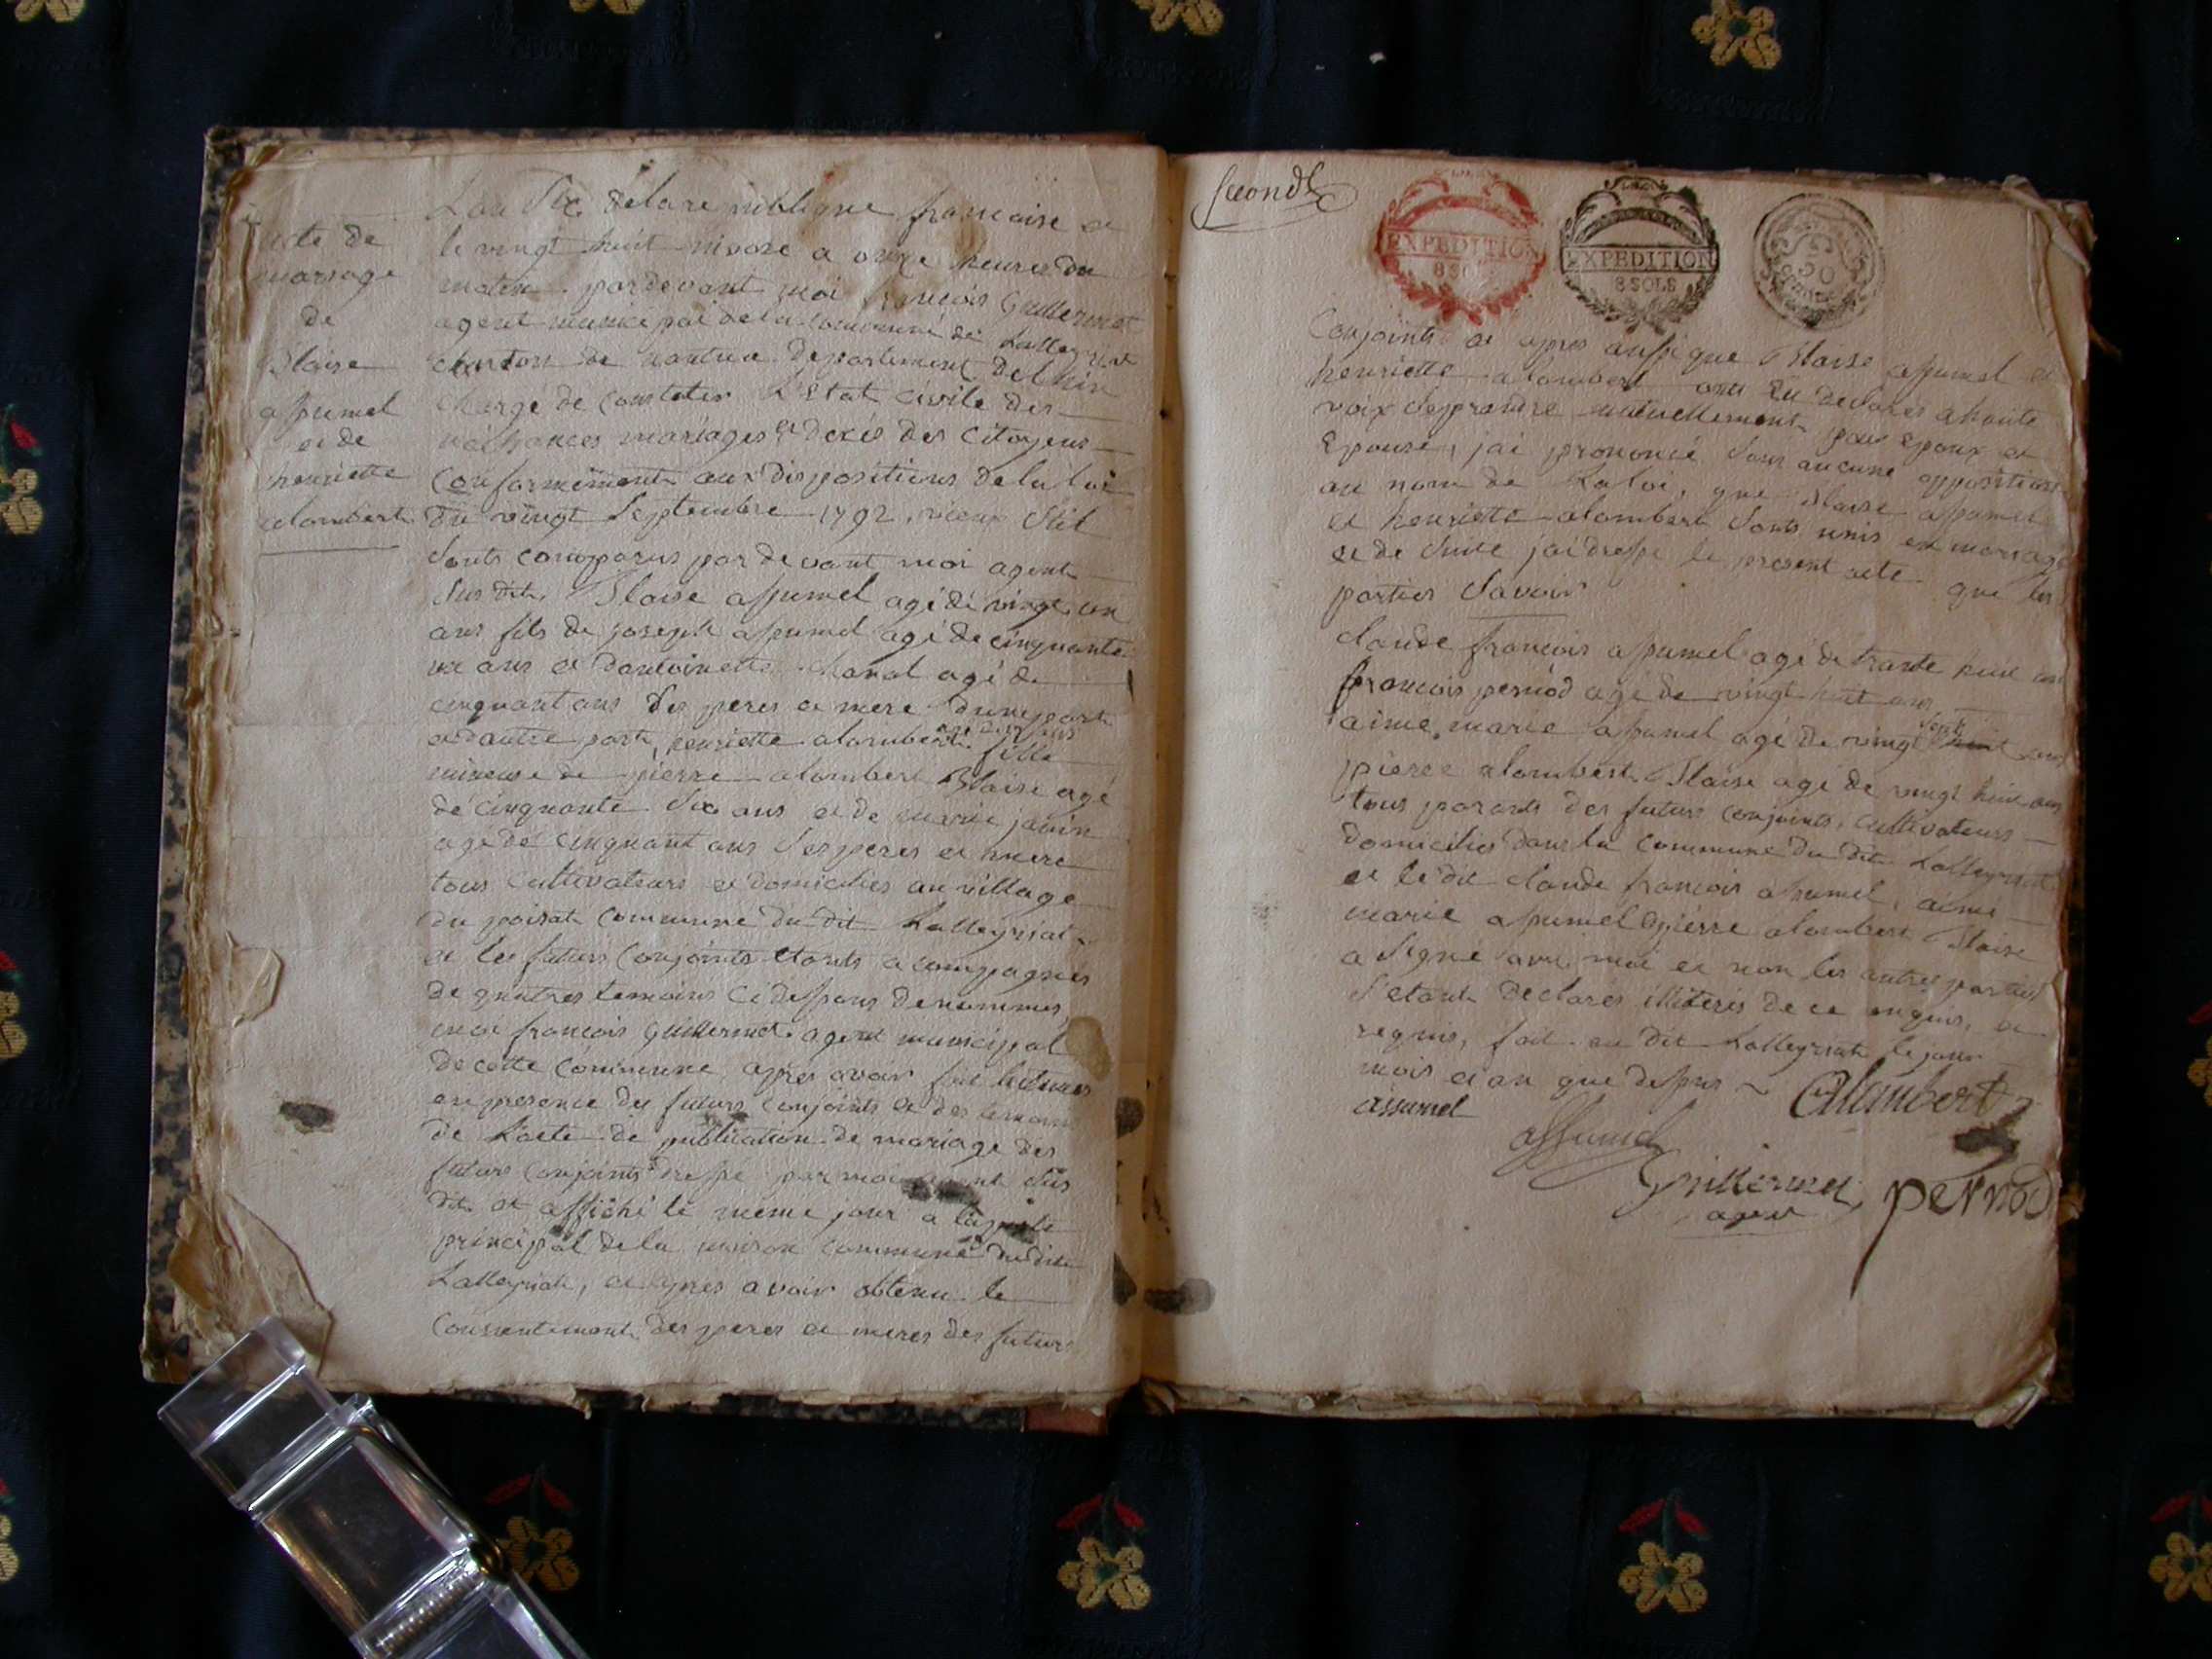 acte de
mariage
de
Blaise
assumel
et de
henriette
alombert
L'an Six de la republique francaise et
le vingt huit nivose a onze heures du
matin. pardevant moi francois Guillermet
agent municipal de la commune de Lalleyriat
canton de nantua departement de l'hin
chargé de constater L'Etat civile des
naissances mariages et decés des Citoyens
Conformement aux dispositions de la loi
du vingt Septembre 1792, vieux Stil
Sonts comparus pardevant moi agent
Sus dit. Blaise assumel agé de vingt un
ans fils de joseph assumel agé de cinquante
ans et dantoinette agé de
cinquant ans Ses peres et mere dune part
et dautre part, henriette alombert fille
mineuse de pierre alombert Blaise agé
de cinquante Six ans et de marie javin
agé de cinquant ans Ses peres et mere
tous Cultivateurs et domiciliés au village
du poisat commune du dit Lalleyriat
et les futurs Conjoints etants acompagnés
de quatres temoins Ci dessous denommes,
moi francois Guillermet agent municipal
de cette Commune, apres avoir fait lectures
en presence des futurs conjoints et des temoins
de L'acte de publication de mariage des
futurs Conjoints dressé par moi agent Sus
dit et affiché le meme jour a la porte
principal de la maison commune du dit
Lalleyriat, et apres avoir obtenu le
Consentement des peres et meres des futurs
Second
EXPEDITION
8 SOLS
EXPEDITION
8 SOLS
50
Conjoints et apres aussi que Blaise assumel et
henriette alombert ont eu declarés a haute
voix Se prendre mutuellement pour Epoux et
Epouse, jai prononcé Sans aucune opposition
au nom de La loi, que Blaise assumel
et henriette alombert Sonts unis en mariage
et de Suite jai dressé le present acte que les
parties Savoir
claude francois assumel agé de trante huit ans
francois pernod agé de vingt huit ans
aime marie assumel agé de vingt Sept huit ans
pierre alombert Blaise agé de vingt huit ans
tous parants des futurs conjoints, cultivateurs
domiciliés dans la commune du dit Lalleyriat
et le dit claude francois assumel, aimé
marie assumel et pierre alombert Blaise
a Signé avec moi et non les autres parties
S'etant declarés illiterés de ce enquis, et
requis, fait au dit Lalleyriat le jour
mois et an que dessus
assumel
assumel
Alambert
Guillermet
agent
pernod